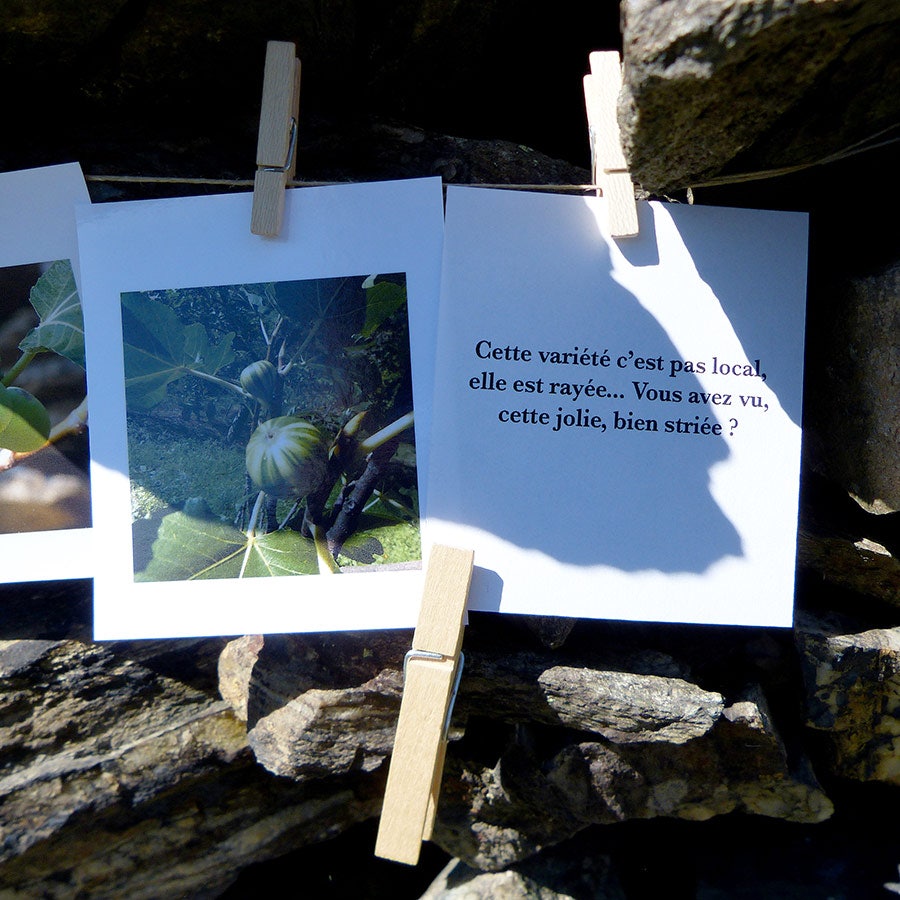 Cette variété c’est pas local,
elle est rayée... Vous avez vu,
cette jolie, bien striée ?